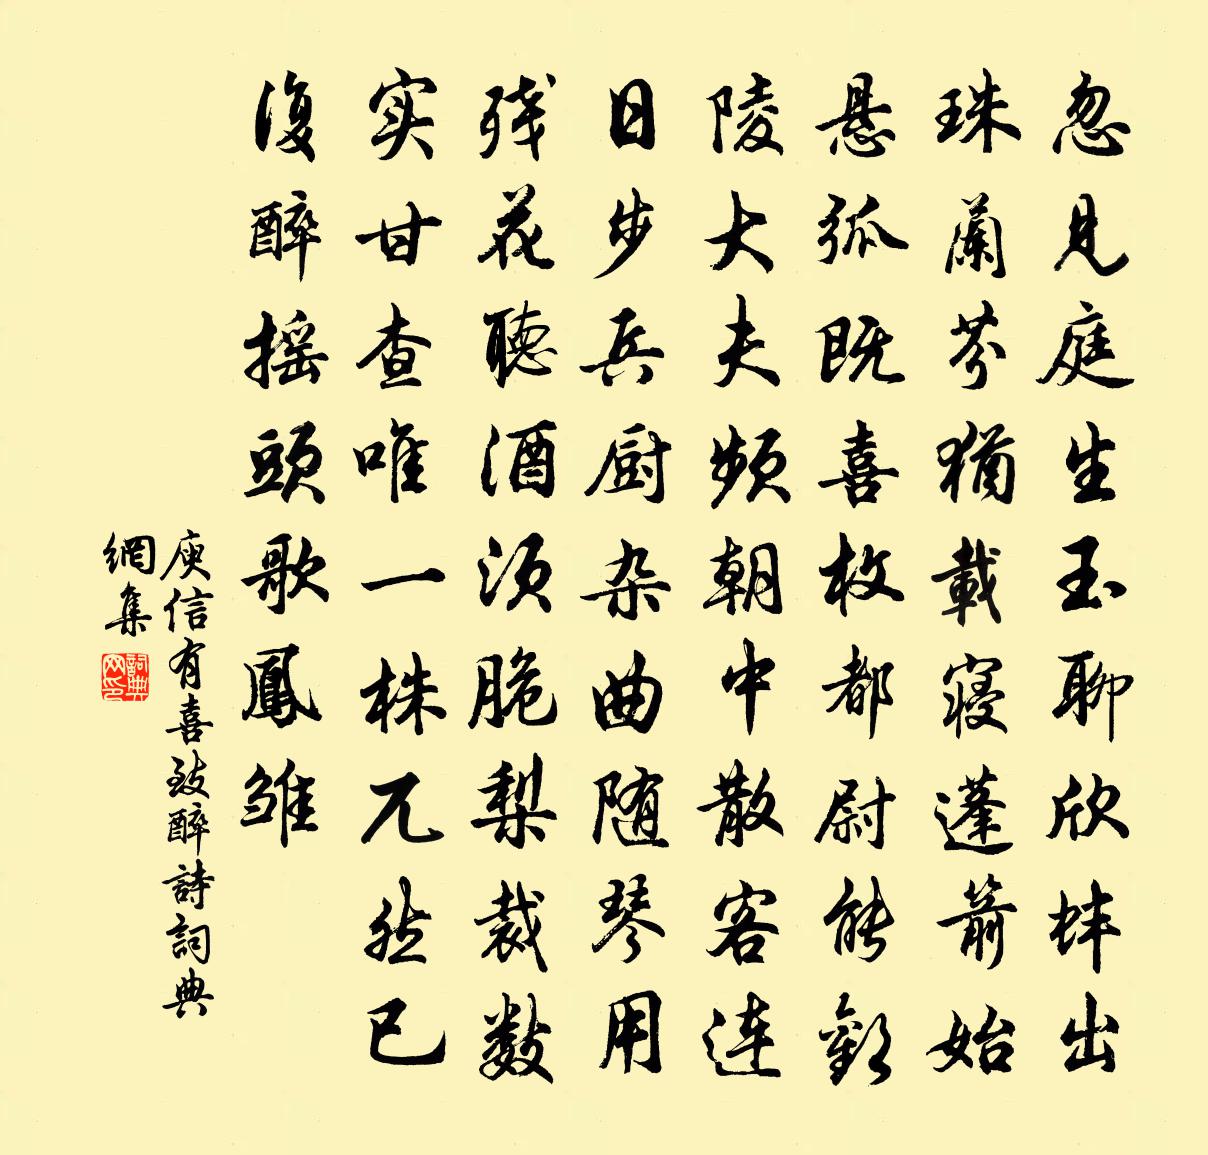 忽見庭生玉聊欣蚌出
珠蘭芬猶載寝蓬箭始
悬弧既喜枚都尉能歡
陵大夫頻朝中散客連
日步兵厨杂曲随琴用
残花聽酒须脆梨裁数
实甘查唯一株兀然已
復醉摇頭歌鳳雏
庾信有喜致醉詩詞典
網集
詞典
网印